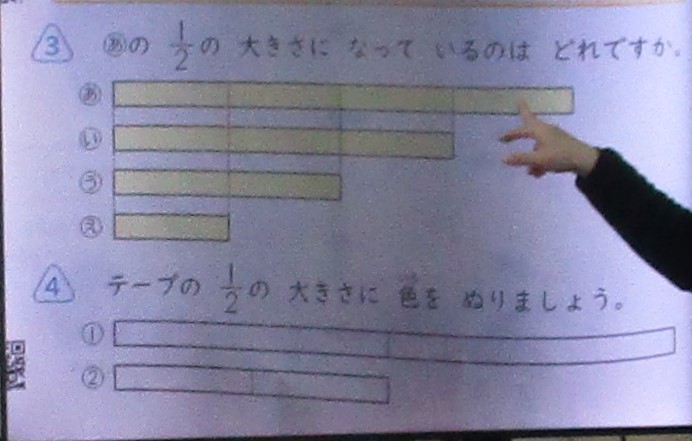 3 あの 1/2の 大きさに なって いるのは どれですか。
あ
い
う
え
4 テープの 1/2の 大きさに 色を ぬりましょう。
①
②